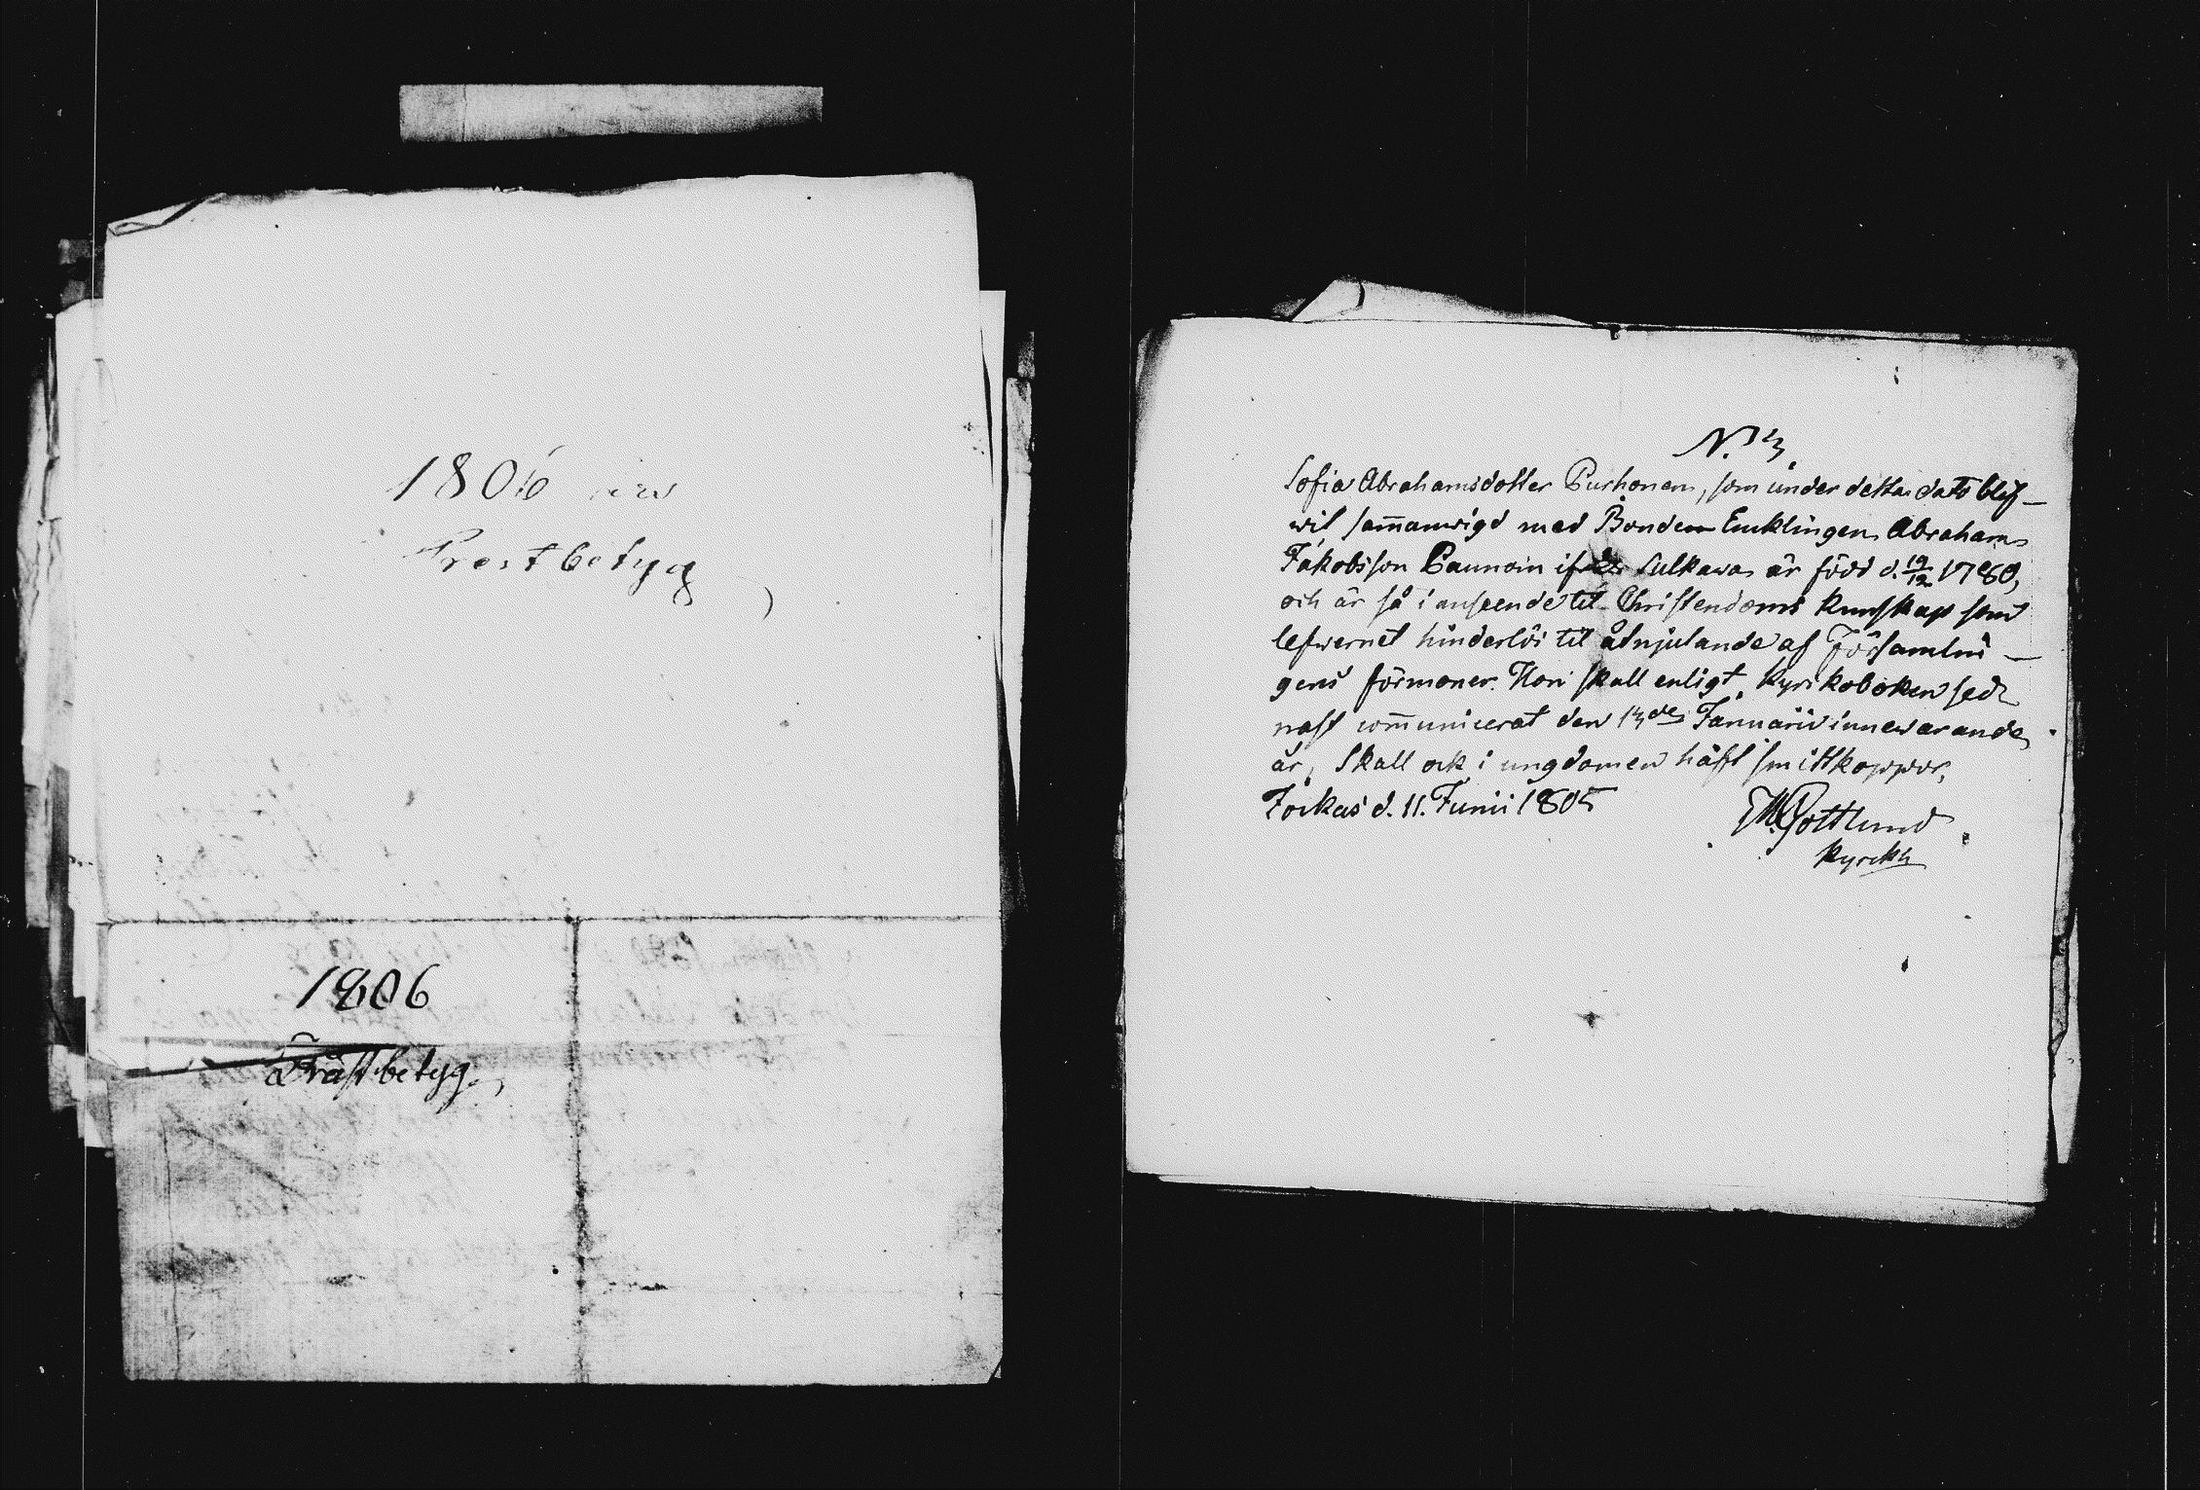 1806
Prestbetyg
1806
Prästbetyg.
N. 3
Sofia Abrahamsdotter Purhonen, som under detta dato blif-
wit sam̄anwigd med Bonden Enklingen Abraham
Jakobsson Paunoin ifrån Sulkawa är född d. 19/12 1780,
och är så i anseende til Christendoms kunskap som
lefwernet hinderlös til åtnjutande af Församlin-
gens förmoner. Hon skall enligt Kyrkoboken sed-
nast com̄unicerat den 13de Januarii innewarande
år, Skall ock i ungdomen häfft smittkoppor,
Jockas d. 11. Junii 1805
M. Gottlund
Kyrckh